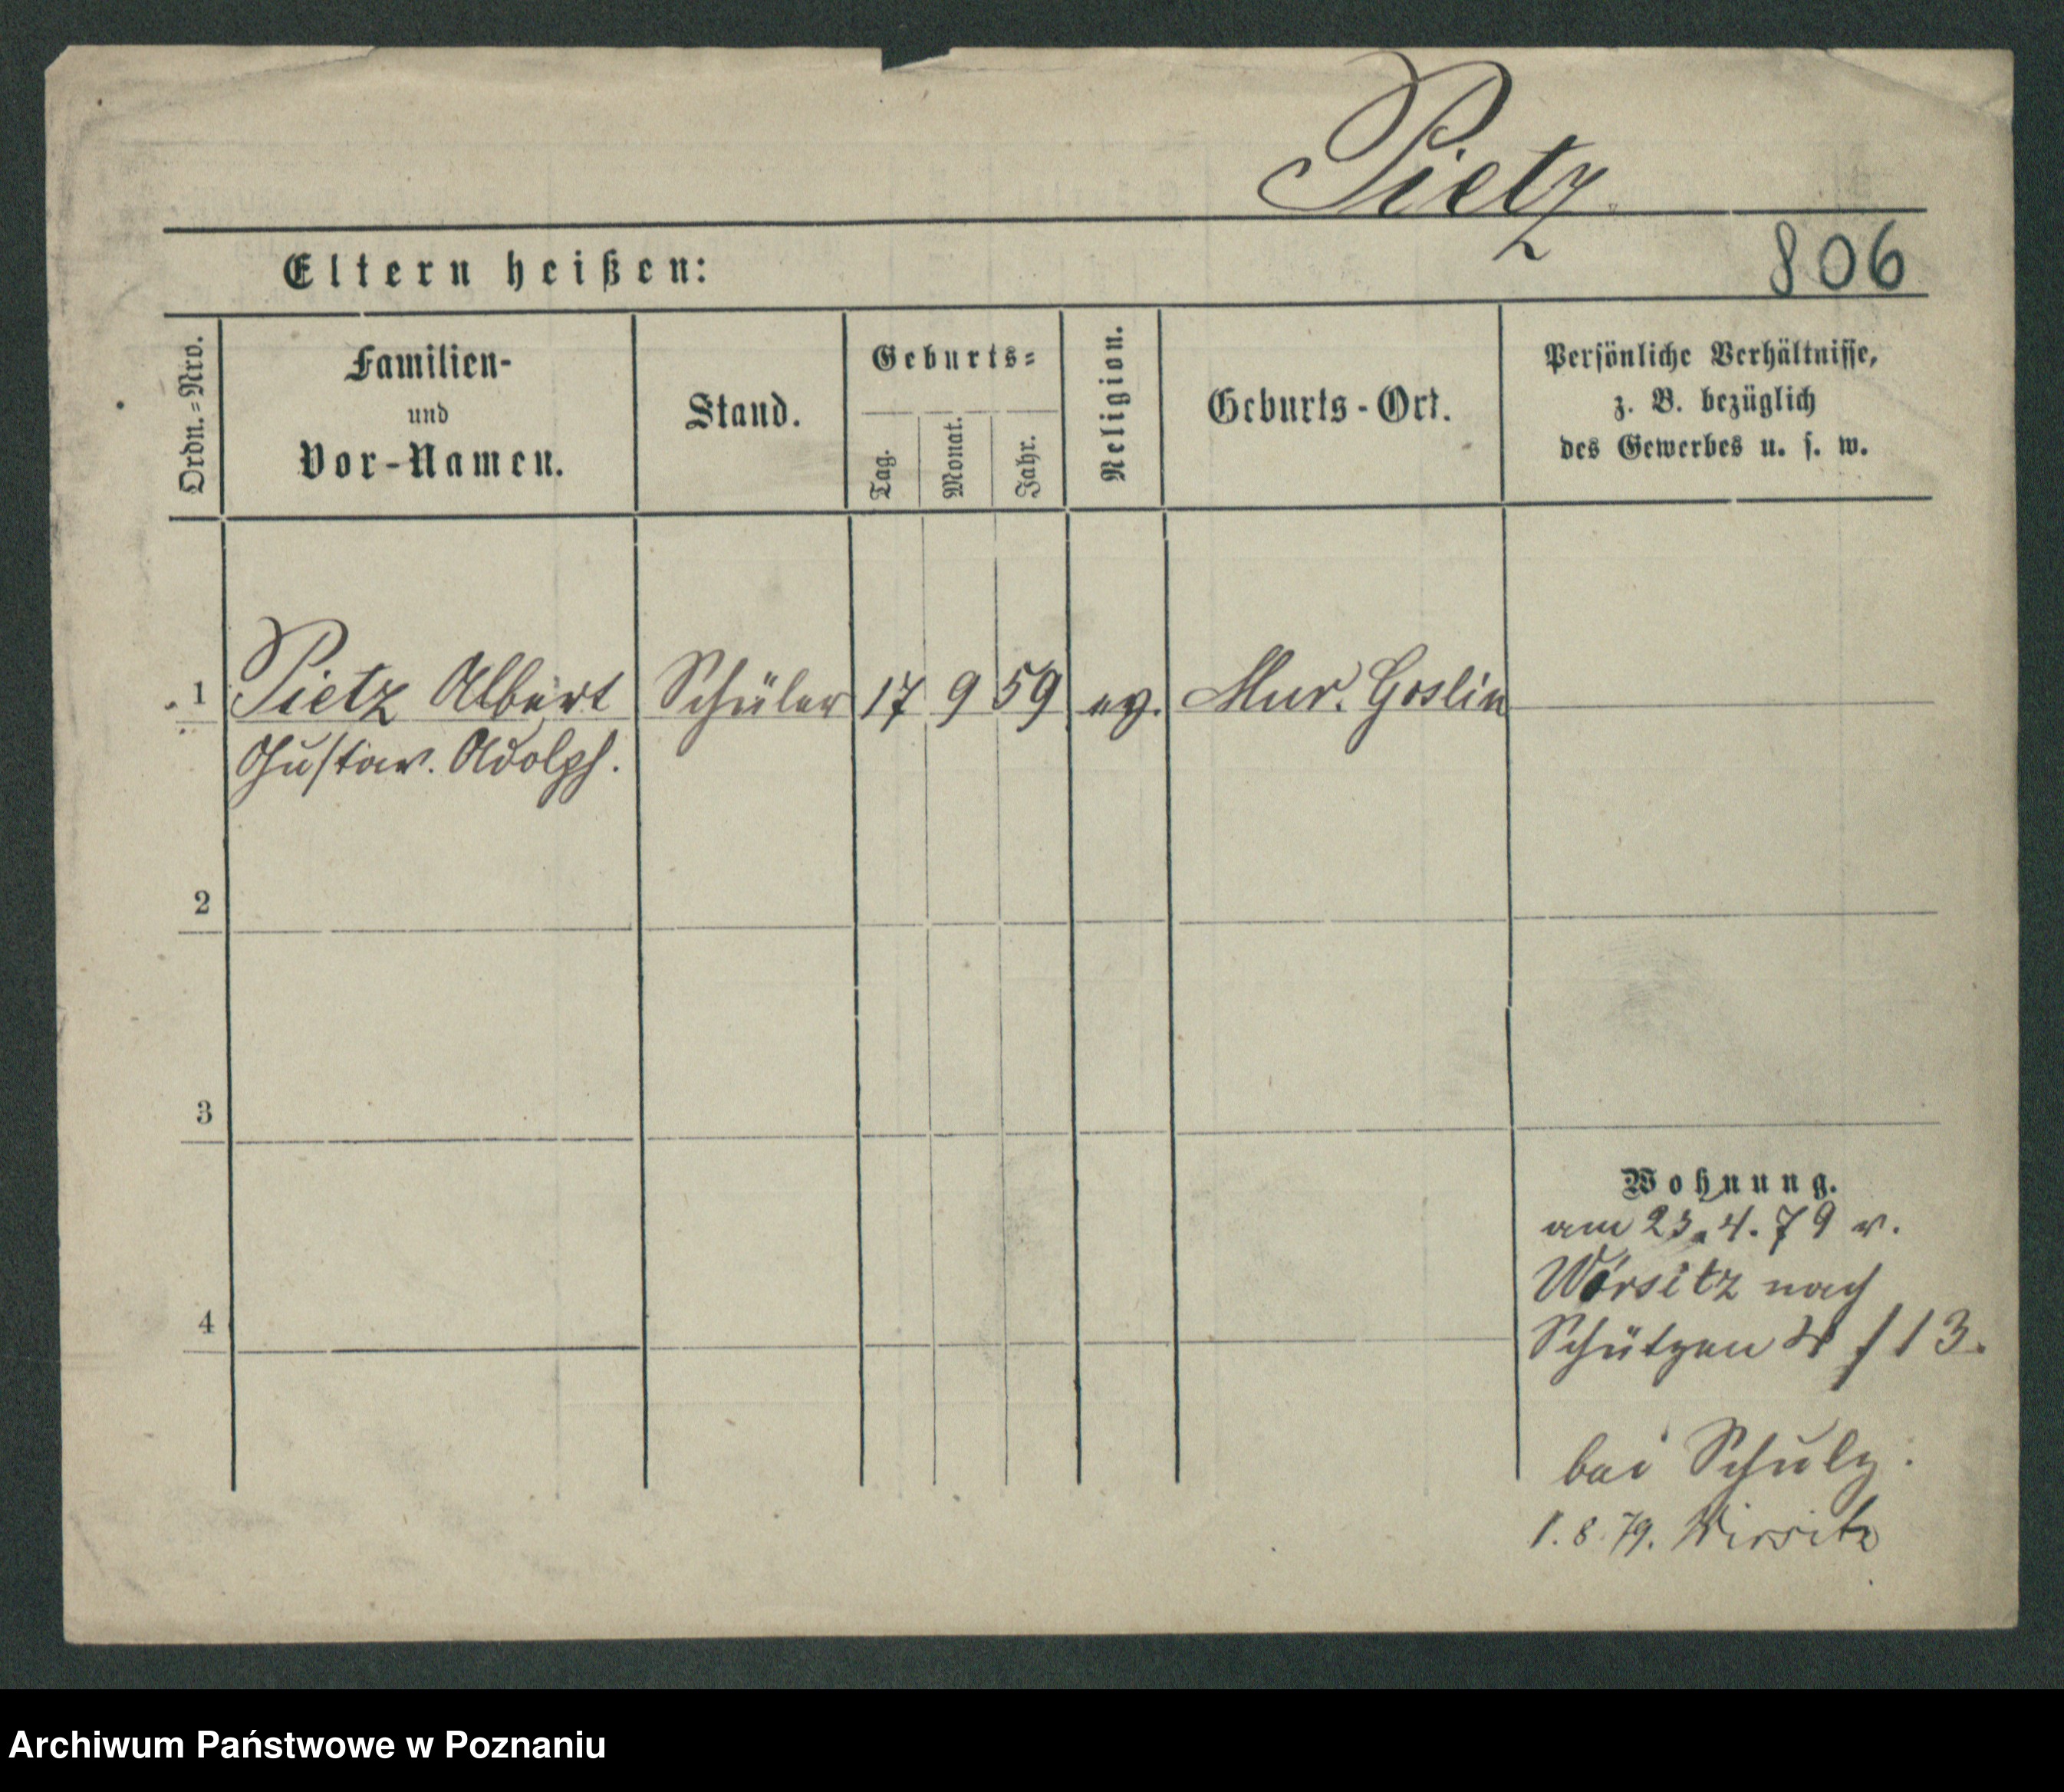 Pietz
806
Eltern heißen:
Ordn.=Nro.
Familien-
und
Vor-Namen.
Stand.
Geburts=
Tag.
Monat.
Jahr.
Religion.
Geburts-Ort.
Persönliche Verhältnisse,
z. B. bezüglich
des Gewerbes u. s. w.
1 Pietz Albert Schüler 17 9 59 ev. Mur. Goslin
Gustav. Adolph.
2
3
4
Wohnung.
am 23.4.79 v.
Wirsitz nach
Schützen 13.
bei Schulz.
1.8.79. Wirsitz
Archiwum Państwowe w Poznaniu